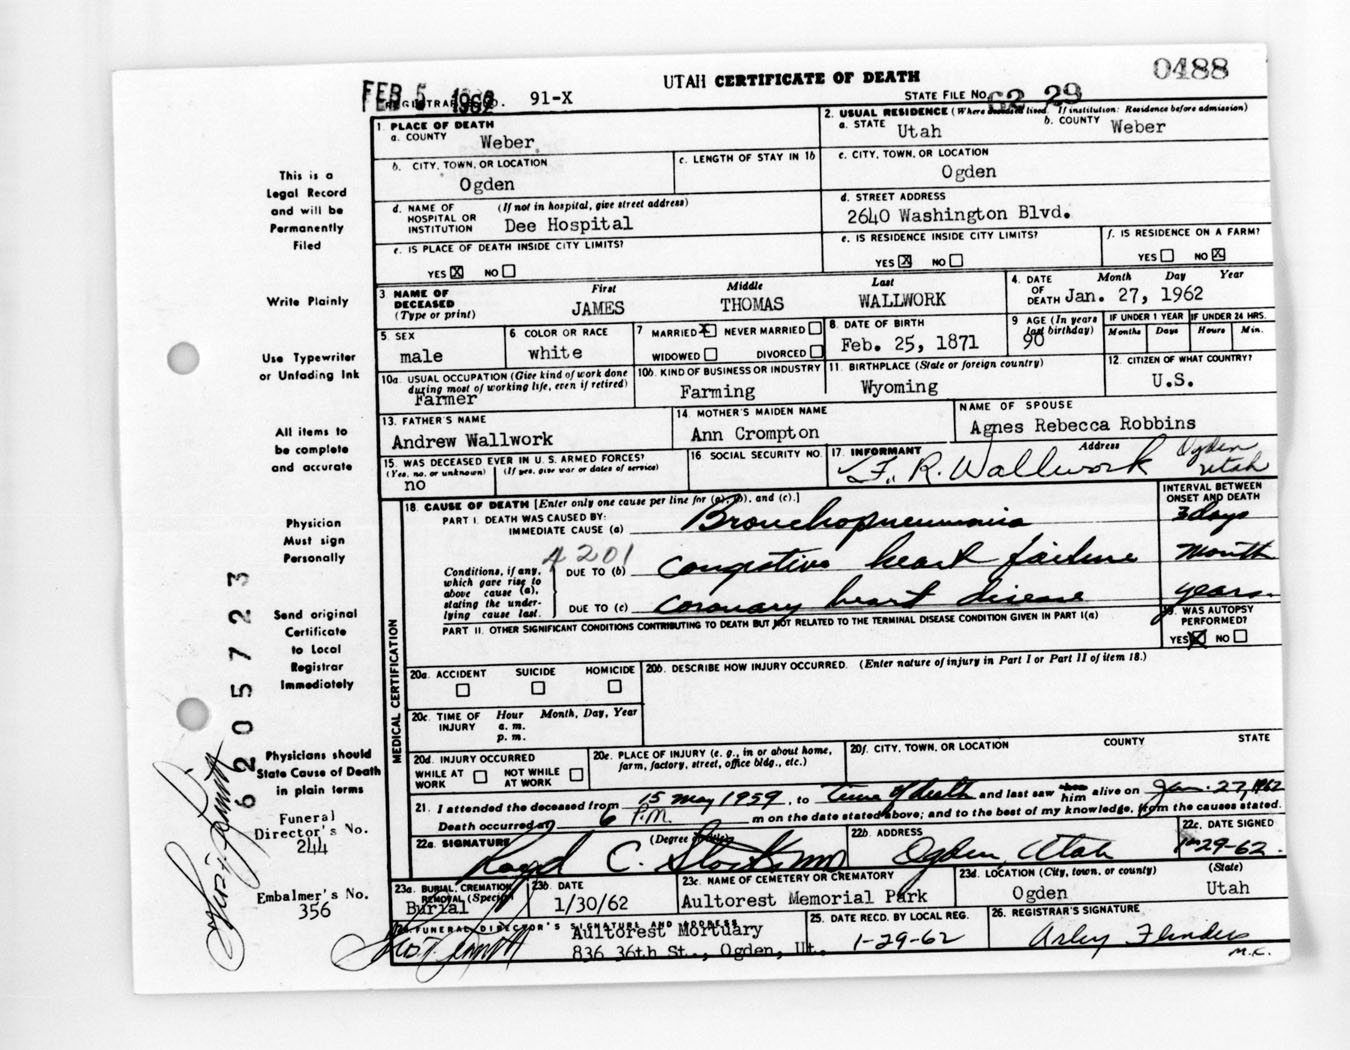 0488
UTAH CERTIFICATE OF DEATH
FEB 5 1962
REGISTRAR'S NO. 91-X
STATE FILE No. 62 29
1. PLACE OF DEATH
a. COUNTY Weber
2. USUAL RESIDENCE (Where deceased lived. If institution: Residence before admission)
a. STATE Utah b. COUNTY Weber
b. CITY, TOWN, OR LOCATION
Ogden
c. LENGTH OF STAY IN 1b
c. CITY, TOWN, OR LOCATION
Ogden
d. NAME OF HOSPITAL OR INSTITUTION (If not in hospital, give street address)
Dee Hospital
d. STREET ADDRESS
2640 Washington Blvd.
e. IS PLACE OF DEATH INSIDE CITY LIMITS?
YES X NO
e. IS RESIDENCE INSIDE CITY LIMITS?
YES X NO
f. IS RESIDENCE ON A FARM?
YES NO X
3. NAME OF DECEASED (Type or print)
First Middle Last
JAMES THOMAS WALLWORK
4. DATE OF DEATH Month Day Year
Jan. 27, 1962
5. SEX
male
6 COLOR OR RACE
white
7 MARRIED X NEVER MARRIED
WIDOWED DIVORCED
8. DATE OF BIRTH
Feb. 25, 1871
9 AGE (In years last birthday)
90
IF UNDER 1 YEAR
Months Days
IF UNDER 24 HRS.
Hours Min.
10a. USUAL OCCUPATION (Give kind of work done during most of working life, even if retired)
Farmer
10b. KIND OF BUSINESS OR INDUSTRY
Farming
11. BIRTHPLACE (State or foreign country)
Wyoming
12. CITIZEN OF WHAT COUNTRY?
U.S.
13. FATHER'S NAME
Andrew Wallwork
14. MOTHER'S MAIDEN NAME
Ann Crompton
NAME OF SPOUSE
Agnes Rebecca Robbins
15. WAS DECEASED EVER IN U. S. ARMED FORCES?
(Yes, no, or unknown) (If yes, give war or dates of service)
no
16. SOCIAL SECURITY NO.
17. INFORMANT Address
F. R. Wallwork Ogden Utah
18. CAUSE OF DEATH [Enter only one cause per line for (a), (b), and (c).]
INTERVAL BETWEEN ONSET AND DEATH
PART I. DEATH WAS CAUSED BY:
IMMEDIATE CAUSE (a) Bronchopneumonia 3 days
4201
Conditions, if any, which gave rise to above cause (a), stating the underlying cause last.
DUE TO (b) Congestive heart failure month
DUE TO (c) coronary heart disease years
PART II. OTHER SIGNIFICANT CONDITIONS CONTRIBUTING TO DEATH BUT NOT RELATED TO THE TERMINAL DISEASE CONDITION GIVEN IN PART I(a)
19. WAS AUTOPSY PERFORMED?
YES X NO
MEDICAL CERTIFICATION
20a. ACCIDENT SUICIDE HOMICIDE
20b. DESCRIBE HOW INJURY OCCURRED. (Enter nature of injury in Part I or Part II of item 18.)
20c. TIME OF INJURY Hour Month, Day, Year
a. m.
p. m.
20d. INJURY OCCURRED
WHILE AT WORK NOT WHILE AT WORK
20e. PLACE OF INJURY (e. g., in or about home, farm, factory, street, office bldg., etc.)
20f. CITY, TOWN, OR LOCATION COUNTY STATE
21. I attended the deceased from 15 May 1959, to time of death and last saw him alive on Jan. 27, 1962
Death occurred at 6 P.M. m on the date stated above; and to the best of my knowledge, from the causes stated.
22a. SIGNATURE (Degree or title)
22b. ADDRESS
Ogden, Utah
22c. DATE SIGNED
29-62
23a. BURIAL, CREMATION REMOVAL (Specify)
Burial
23b. DATE
1/30/62
23c. NAME OF CEMETERY OR CREMATORY
Aultorest Memorial Park
23d. LOCATION (City, town, or county) (State)
Ogden Utah
24. FUNERAL DIRECTOR'S SIGNATURE AND ADDRESS
Aultorest Mortuary
836 36th St., Ogden, Ut.
25. DATE RECD. BY LOCAL REG.
1-29-62
26. REGISTRAR'S SIGNATURE
Arley Flinders
M.K.
This is a
Legal Record
and will be
Permanently
Filed
Write Plainly
Use Typewriter
or Unfading Ink
All items to
be complete
and accurate
Physician
Must sign
Personally
Send original
Certificate
to Local
Registrar
Immediately
Physicians should
State Cause of Death
in plain terms
Funeral
Director's No.
244
Embalmer's No.
356
6205723